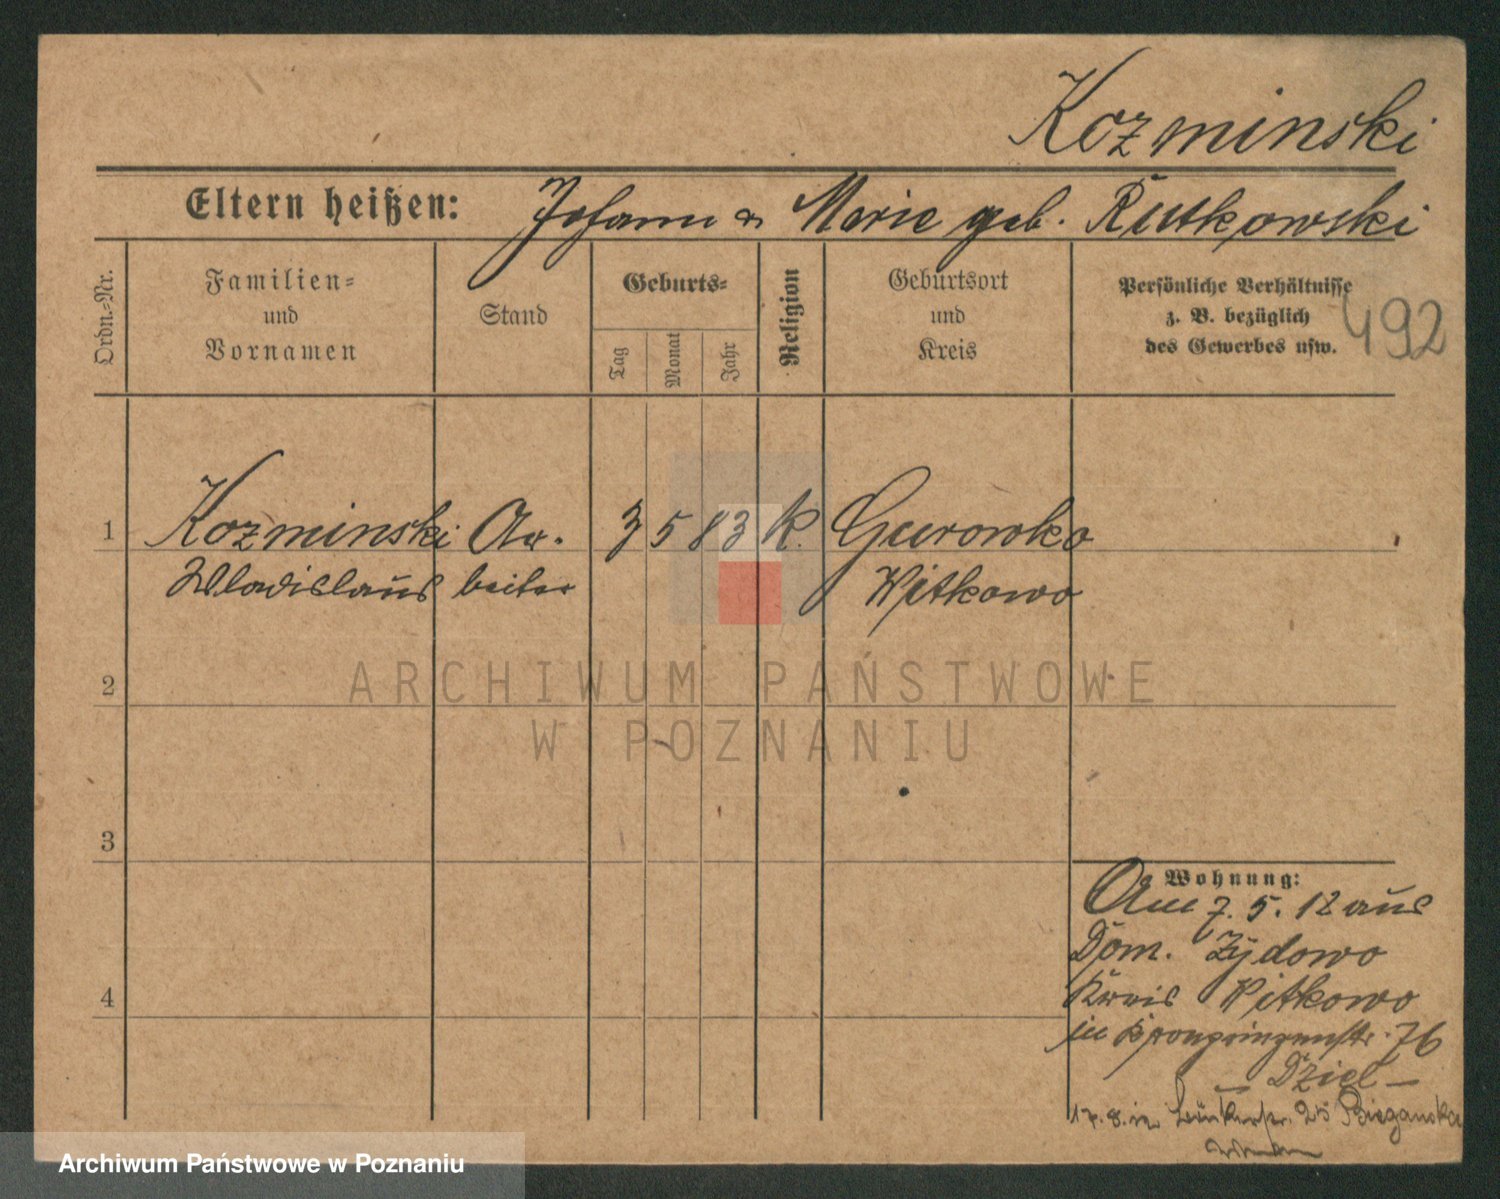 Kozminski
Eltern heißen: Johann u Marie geb. Rutkowski
Ordn.-Nr.
Familien-
und
Vornamen
Stand
Geburts-
Tag
Monat
Jahr
Religion
Geburtsort
und
Kreis
Persönliche Verhältnisse
z. B. bezüglich
des Gewerbes usw.
492
1 Kozminski Ar. 3 5 83 K. Gurowko
Wladislaus beiter Witkowo
2
ARCHIWUM PAŃSTWOWE
W POZNANIU
3
Wohnung:
Am 7. 5. 12 aus
Dom. Zydowo
Kreis Witkowo
in Kronprinzenstr. 76
— Dziel —
17. 8. in 25 Bieganska
4
Archiwum Państwowe w Poznaniu